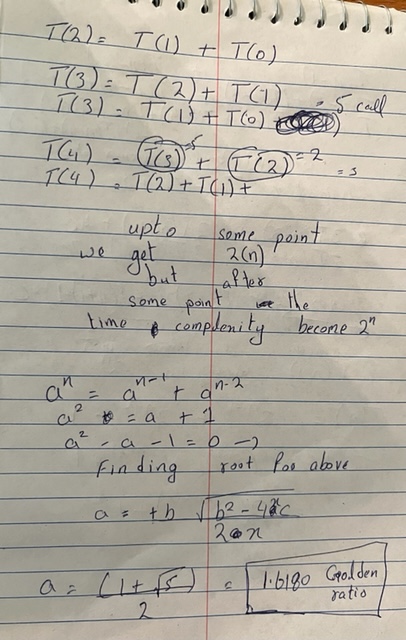 T(2) = T(1) + T(0)
T(3) = T(2) + T(1)
T(3) = T(1) + T(0) + = 5 call
T(4) = T(3) =5 + T(2) =2
T(4) = T(2) + T(1) + = 3
upto some point
we get 2(n)
but after
some point the
time complenity become 2^n
a^n = a^n-1 + a^n-2
a^2 = a + 1
a^2 - a - 1 = 0 →
Finding root above
a = +b √b^2 - 4ac
2 x
a = (1 + √5) = 1.6180 Goolden
2 ratio